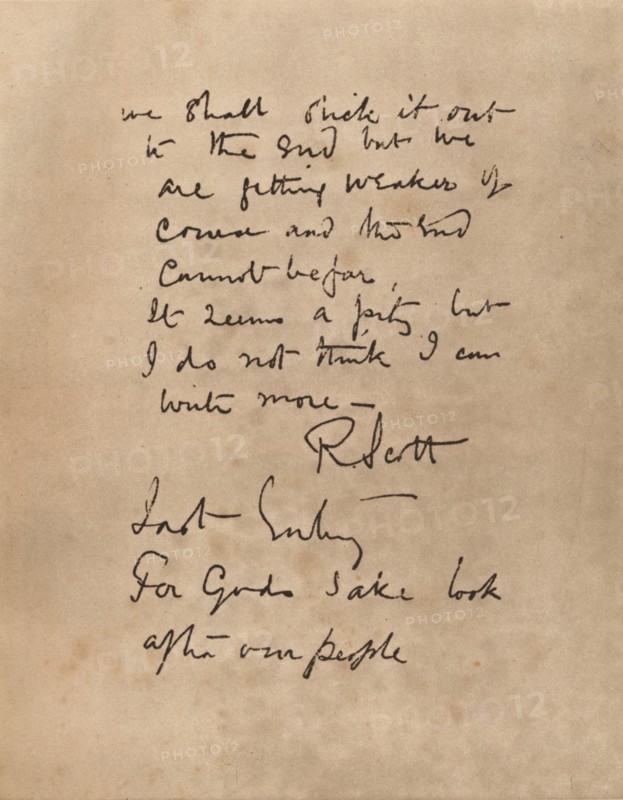 we shall stick it out
to the end but we
are getting weaker of
course and the end
cannot be far.
It seems a pity but
I do not think I can
write more —
R. Scott
Last Entry
For Gods sake look
after our people
PHOTO12